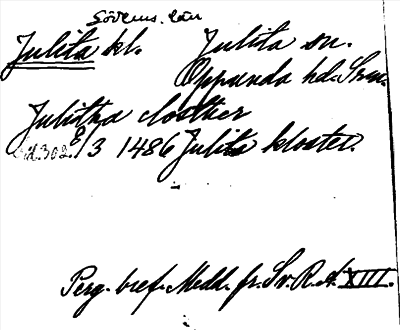 Söderm. län
Julita kl. Julita sn.
Oppunda hd. Srm.
Julitha closther
6/3 1486 Julita kloster.
Perg. bref. Medd. fr. Sv. R. A. XIII.